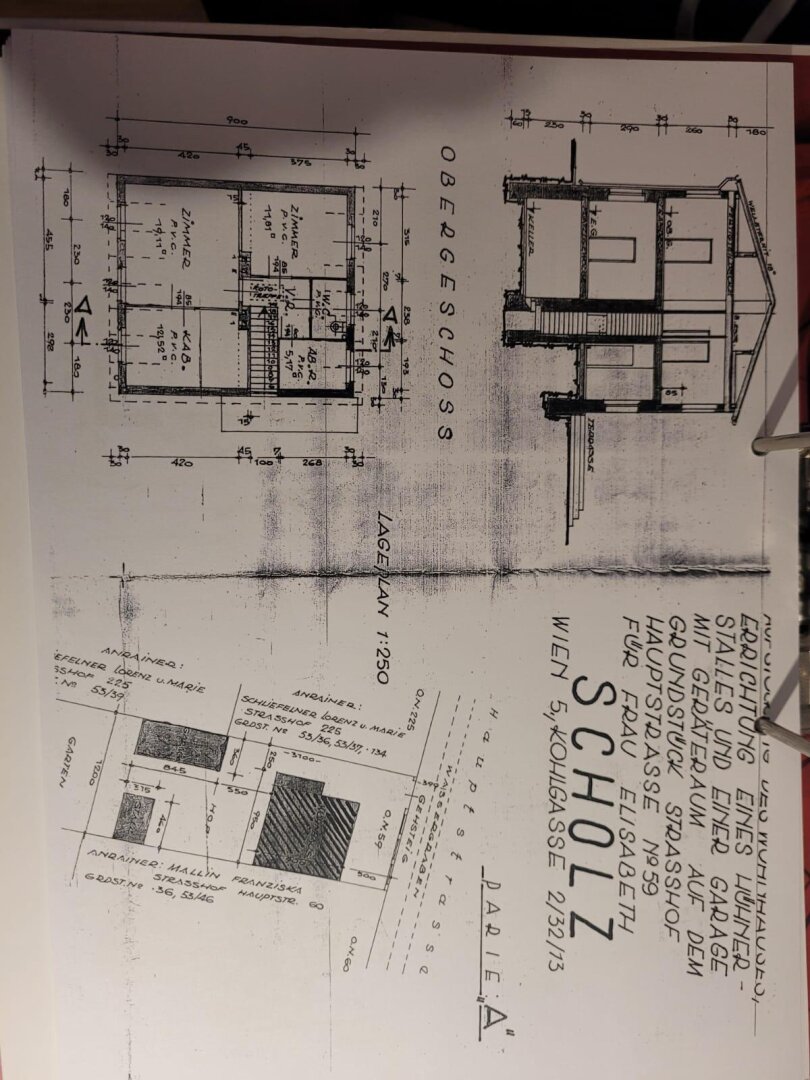 ERRICHTUNG EINES HÜHNER-
STALLES UND EINER GARAGE
MIT GERÄTERAUM AUF DEM
GRUNDSTÜCK STRASSHOF
HAUPTSTRASSE Nº 59
FÜR FRAU ELISABETH
SCHOLZ
WIEN 5, KOHLGASSE 2/32/13
PARIE: "A"
180
260
30
290
30
250
60
KELLER
E.G.
TERRASSE
85
OBERGESCHOSS
900
30
420
45
375
30
ZIMMER
P.V.C.
11,81
ZIMMER
P.V.C.
19,11
W.C.
P.V.C.
V.R.
AB.R.
P.V.C.
5,17
KAB.
P.V.C.
12,52
210
270
210
180
315
238
193
180
230
230
180
455
298
420
45
100
268
LAGEPLAN 1:250
Hauptstrasse
WASSERGRABEN
GEHSTEIG
O.N. 225
O.N. 59
O.N. 60
ANRAINER:
SCHLIEFELNER LORENZ U. MARIE
STRASSHOF 225
GRDST. Nº 53/36, 53/37, ·134
ANRAINER:
LORENZ U. MARIE
225
53/39
-3100-
-399
250
360
845
550
950
500
HOF
315
460
1200
GARTEN
ANRAINER: MALLIN FRANZISKA
STRASSHOF HAUPTSTR. 60
GRDST. Nº ·36, 53/46